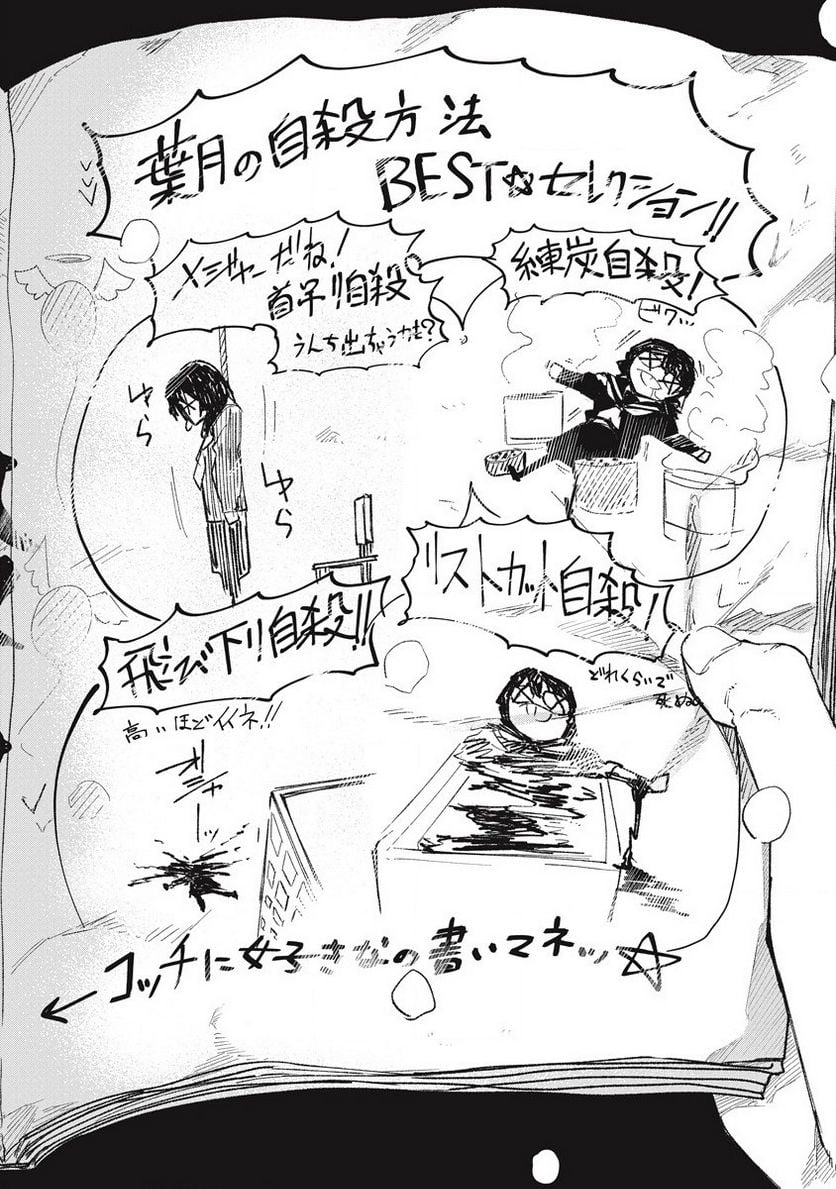 葉月の自殺方法
BEST☆セレクション!!
練炭自殺!
ビクッ…
メジャーだね!
首吊り自殺
うんち出ちゃうかも?
ゆら
ゆら
リストカット自殺!
どれくらいで
死ぬの
飛び下り自殺!!
高いほどイイネ!!
ガシャーッ
コッチに好きなの書いてネッ☆